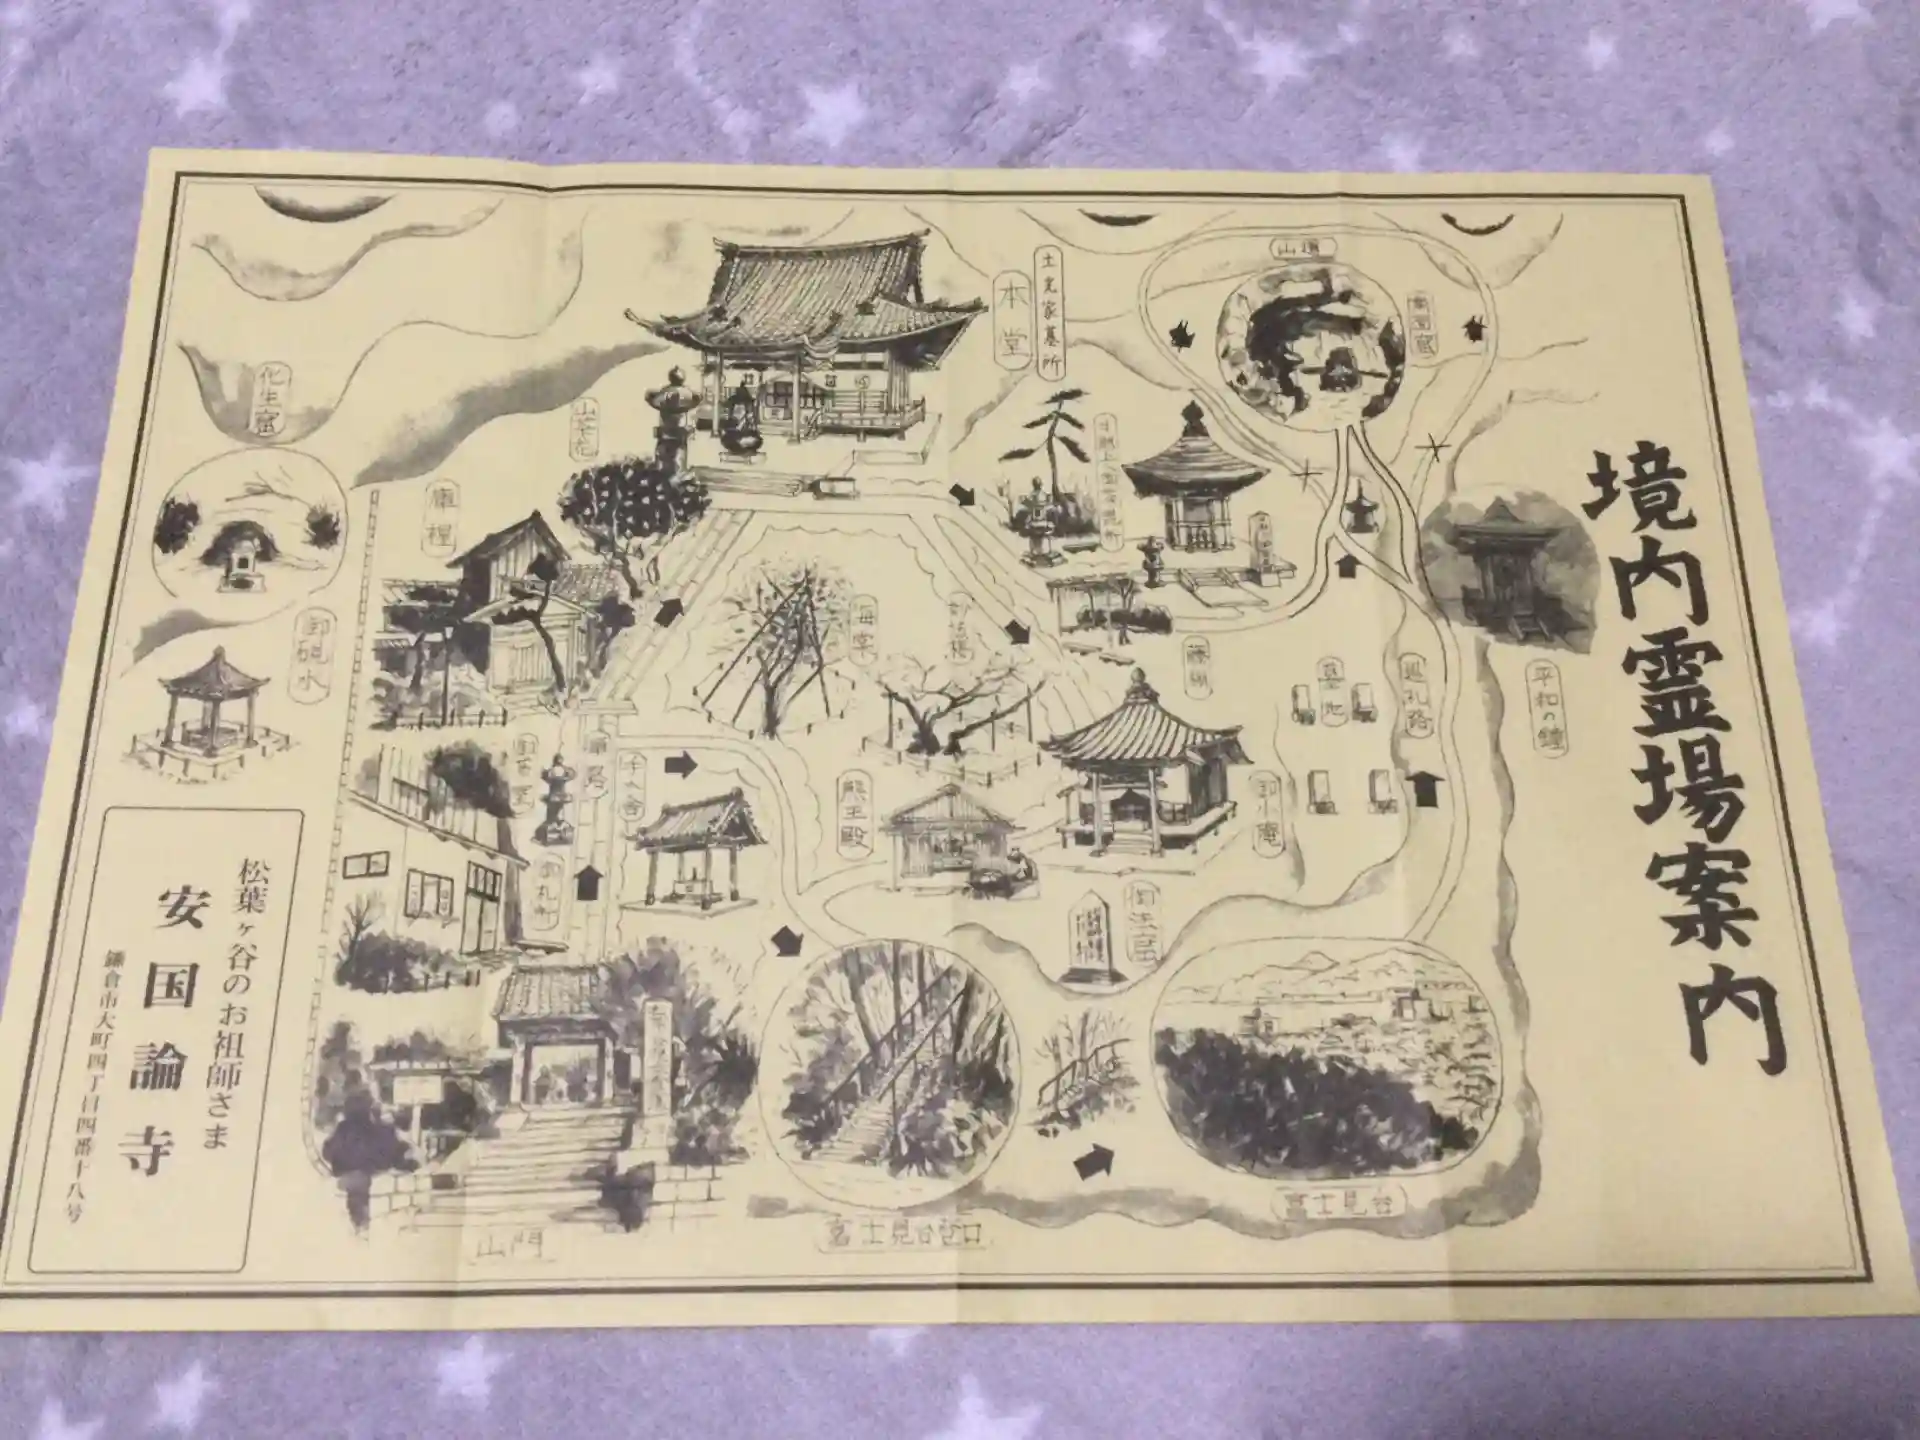 境内霊場案内
山頂
南面窟
土光家墓所
本堂
平和の鐘
巡礼路
墓地
藤棚
御小庵
妙法桜
海棠
熊王殿
南法窟
富士見台
富士見台登口
山茶花
庫裡
山門
化生窟
御硯水
松葉ヶ谷のお祖師さま
安国論寺
鎌倉市大町四丁目四番十八号